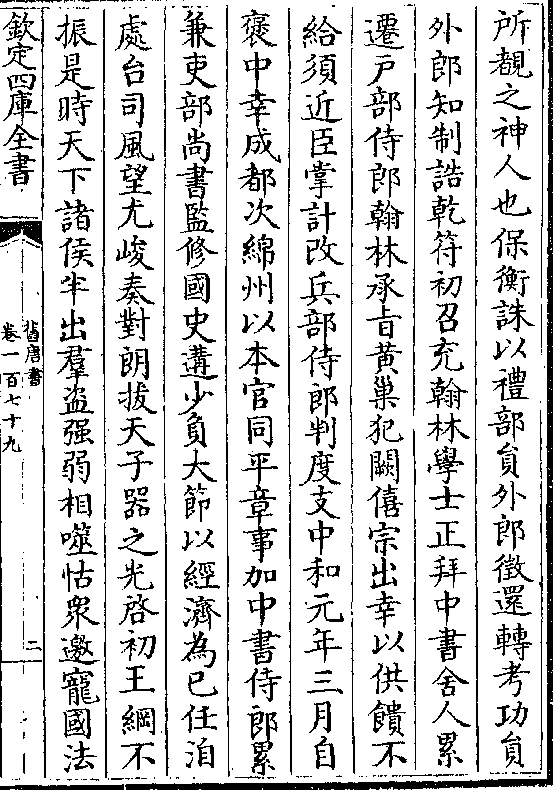 所覩之神人也保衡誅以禮部員外郎徵還轉考功員
外郎知制誥乾符初召充翰林學士正拜中書舍人累
遷戸部侍郎翰林承旨黃巢犯闕僖宗出幸以供饋不
給須近臣掌計改兵部侍郎判度支中和元年三月自
褒中幸成都次綿州以本官同平章事加中書侍郎累
兼吏部尚書監修國史遘少負大節以經濟為已任洎
處台司風望尤峻奏對朗拔天子器之光啓初王綱不
振是時天下諸侯半出羣盜强弱相噬怙衆邀寵國法
欽定四庫全書
舊唐書
卷一百七十九
二